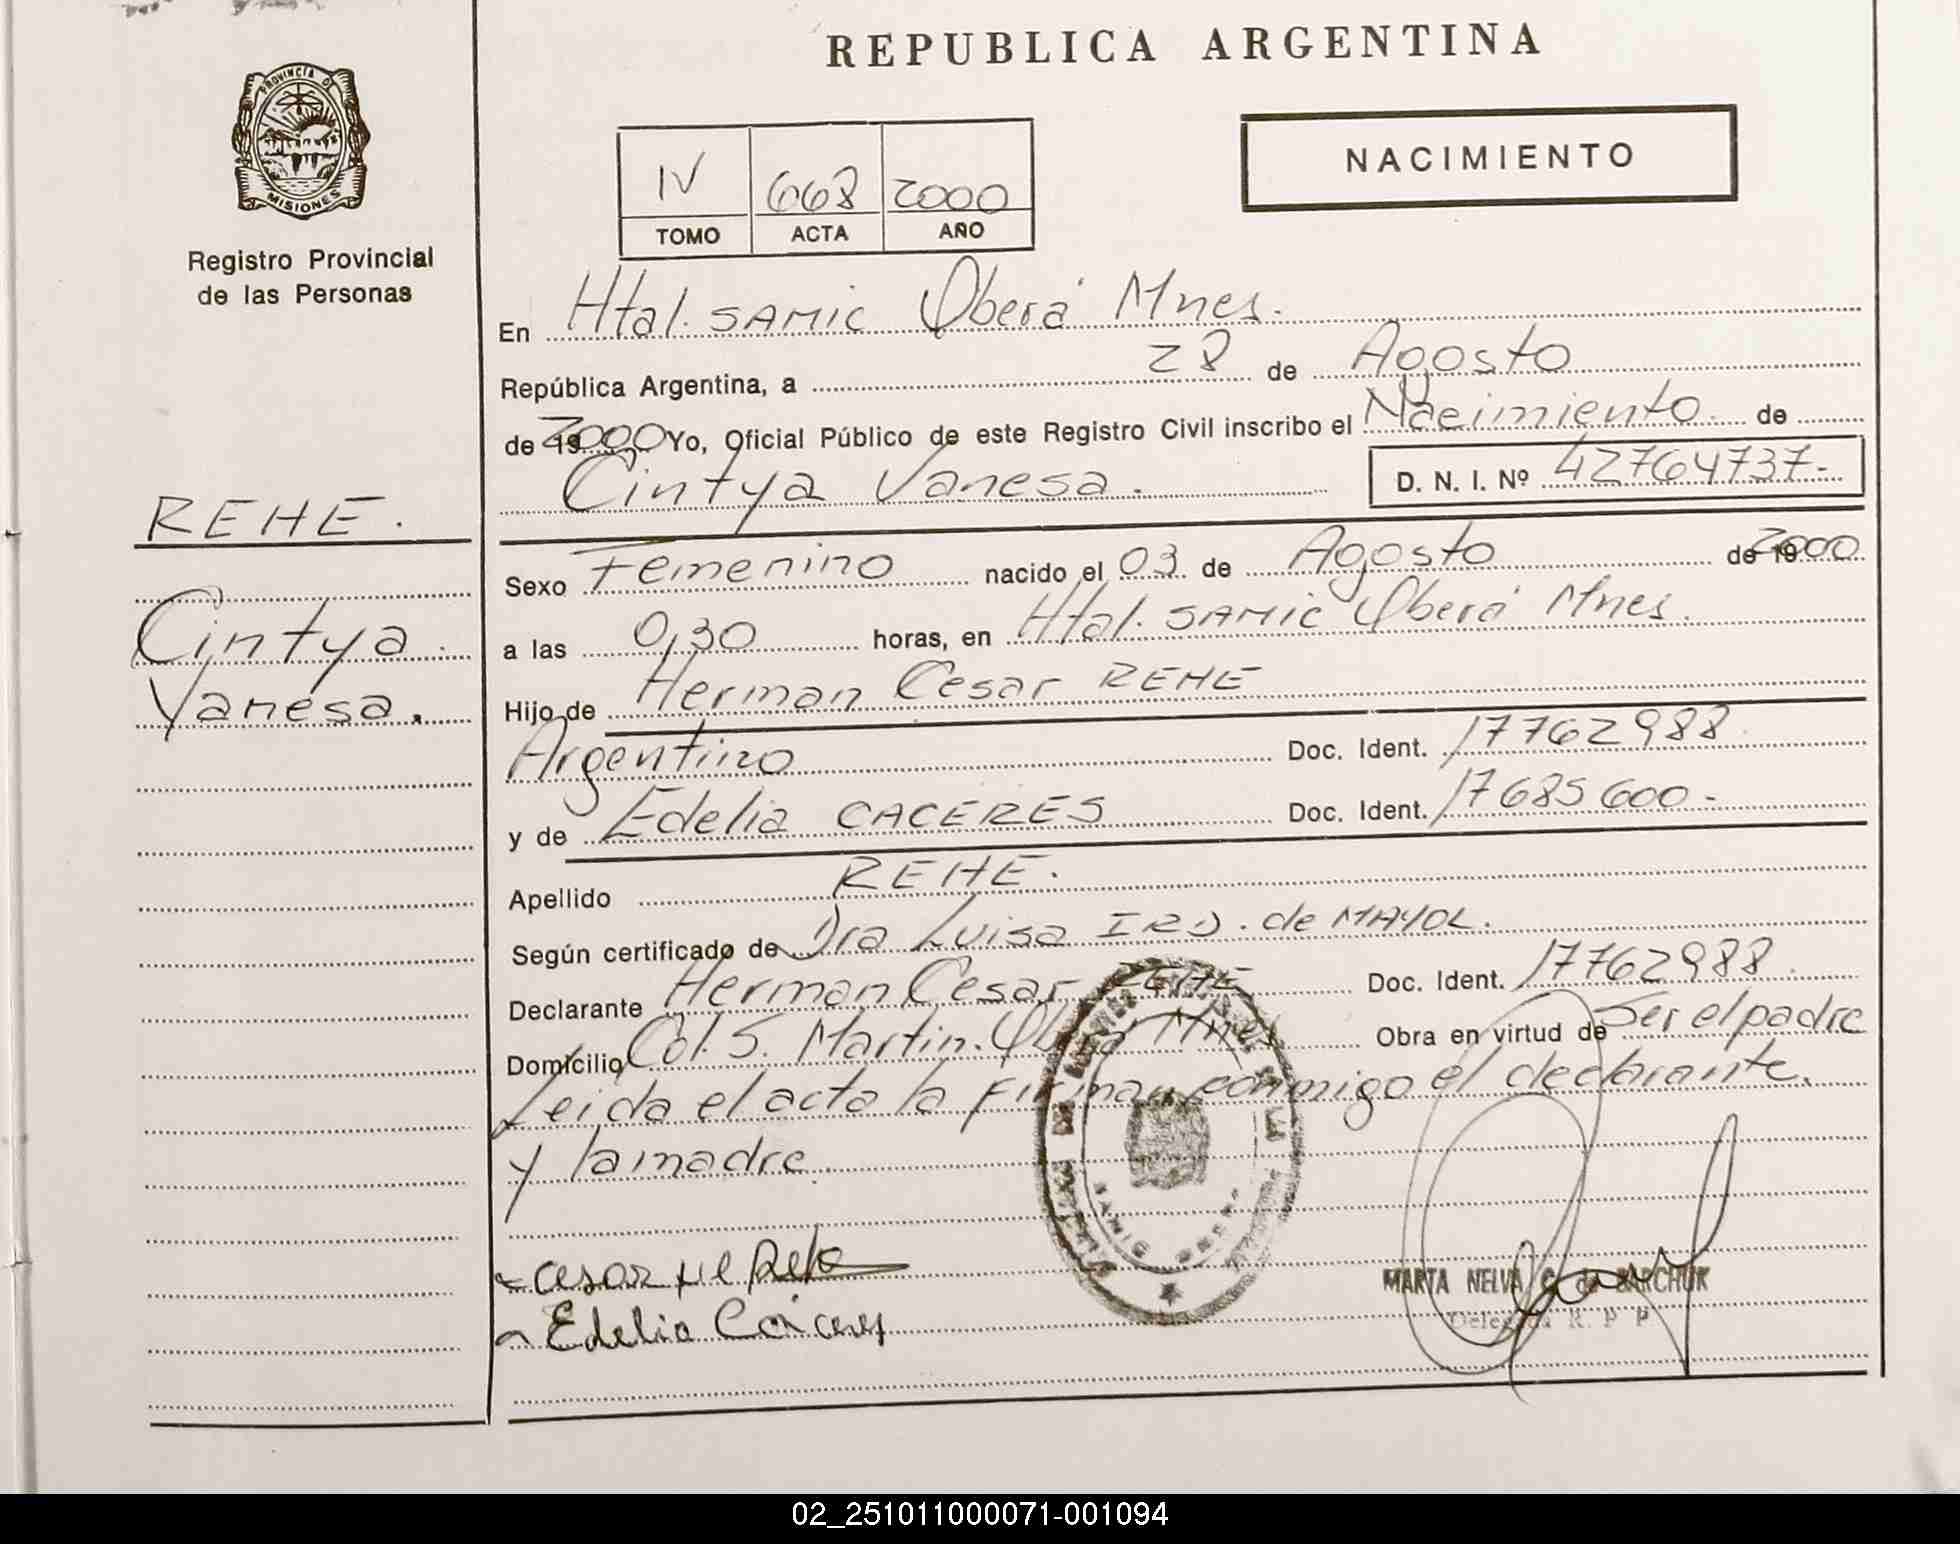 REPUBLICA ARGENTINA
PROVINCIA DE
MISIONES
Registro Provincial
de las Personas
IV 668 2000
TOMO ACTA AÑO
NACIMIENTO
En Htal. SAMIC Oberá Mnes.
República Argentina, a 28 de Agosto
de 19 2000 Yo, Oficial Público de este Registro Civil inscribo el Nacimiento de
Cintya Vanesa. D. N. I. Nº 42764737-
REHE.
Cintya
Vanesa.
Sexo Femenino nacido el 03 de Agosto de 19 2000
a las 0,30 horas, en Htal. SAMIC Oberá Mnes.
Hijo de Herman Cesar REHE
Argentino Doc. Ident. 17762988
y de Edelia CACERES Doc. Ident. 17685600-
Apellido REHE.
Según certificado de Dra Luisa de MAYOL.
Declarante Herman Cesar REHE Doc. Ident. 17762988
Domicilio Col. S. Martin. Oberá Mnes Obra en virtud de Ser el padre
Leida el acta la firman conmigo el declarante.
y la madre.
Cesar
Edelia Caceres
MARTA NELVA de BARCHUK
Delegada R. P. P.
02_251011000071-001094